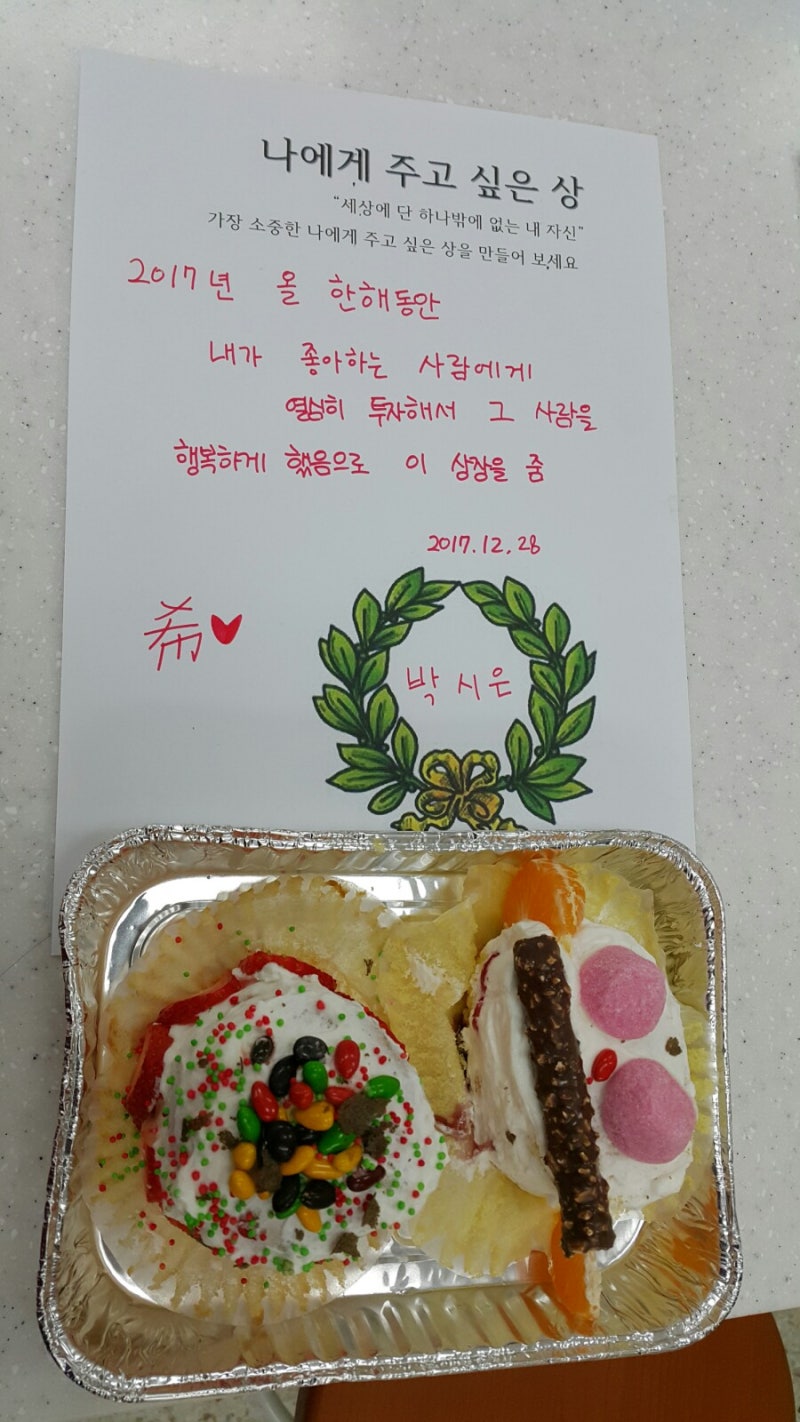 나에게 주고 싶은 상
“세상에 단 하나밖에 없는 내 자신”
가장 소중한 나에게 주고 싶은 상을 만들어 보세요
2017년 올 한해동안
내가 좋아하는 사람에게
열심히 투자해서 그 사람을
행복하게 했음으로 이 상장을 줌
2017.12.28
希♥
박시은